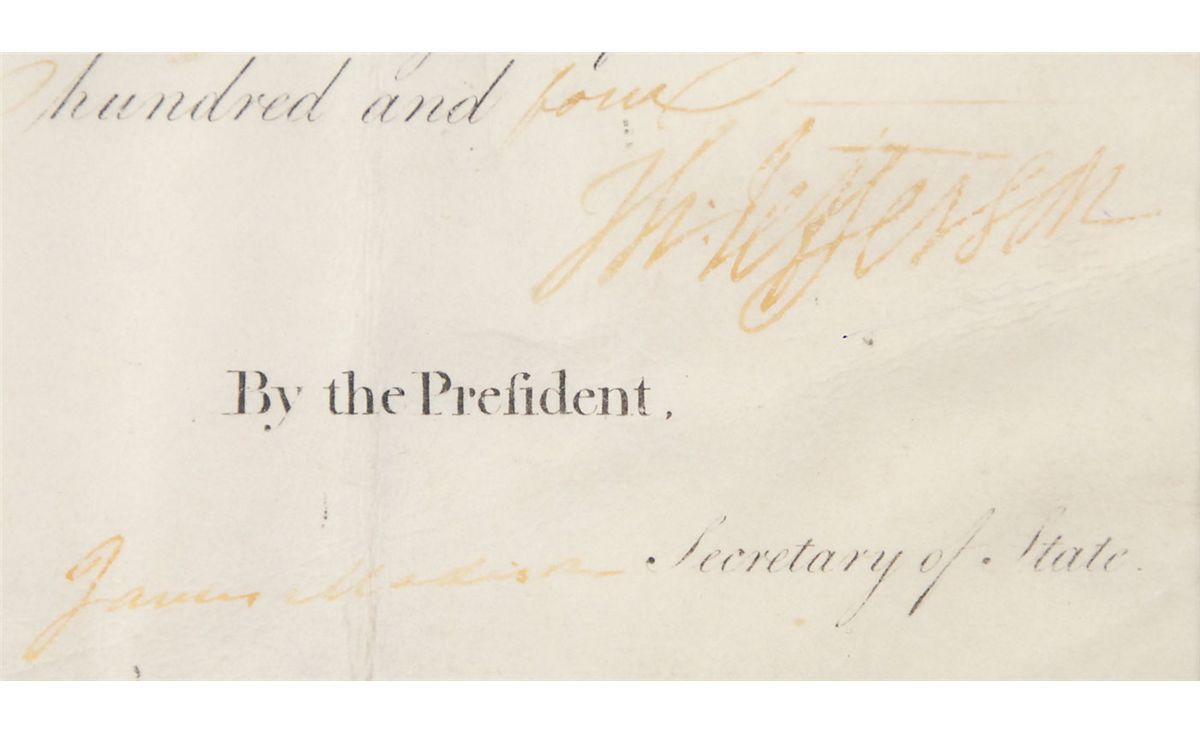 hundred and four
Th: Jefferson
By the Preſident,
James Madison Secretary of State.